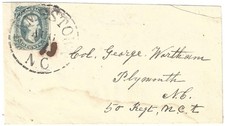 N C
Col. George Wortham
Plymouth
N.C.
50 Regt, N.C.T